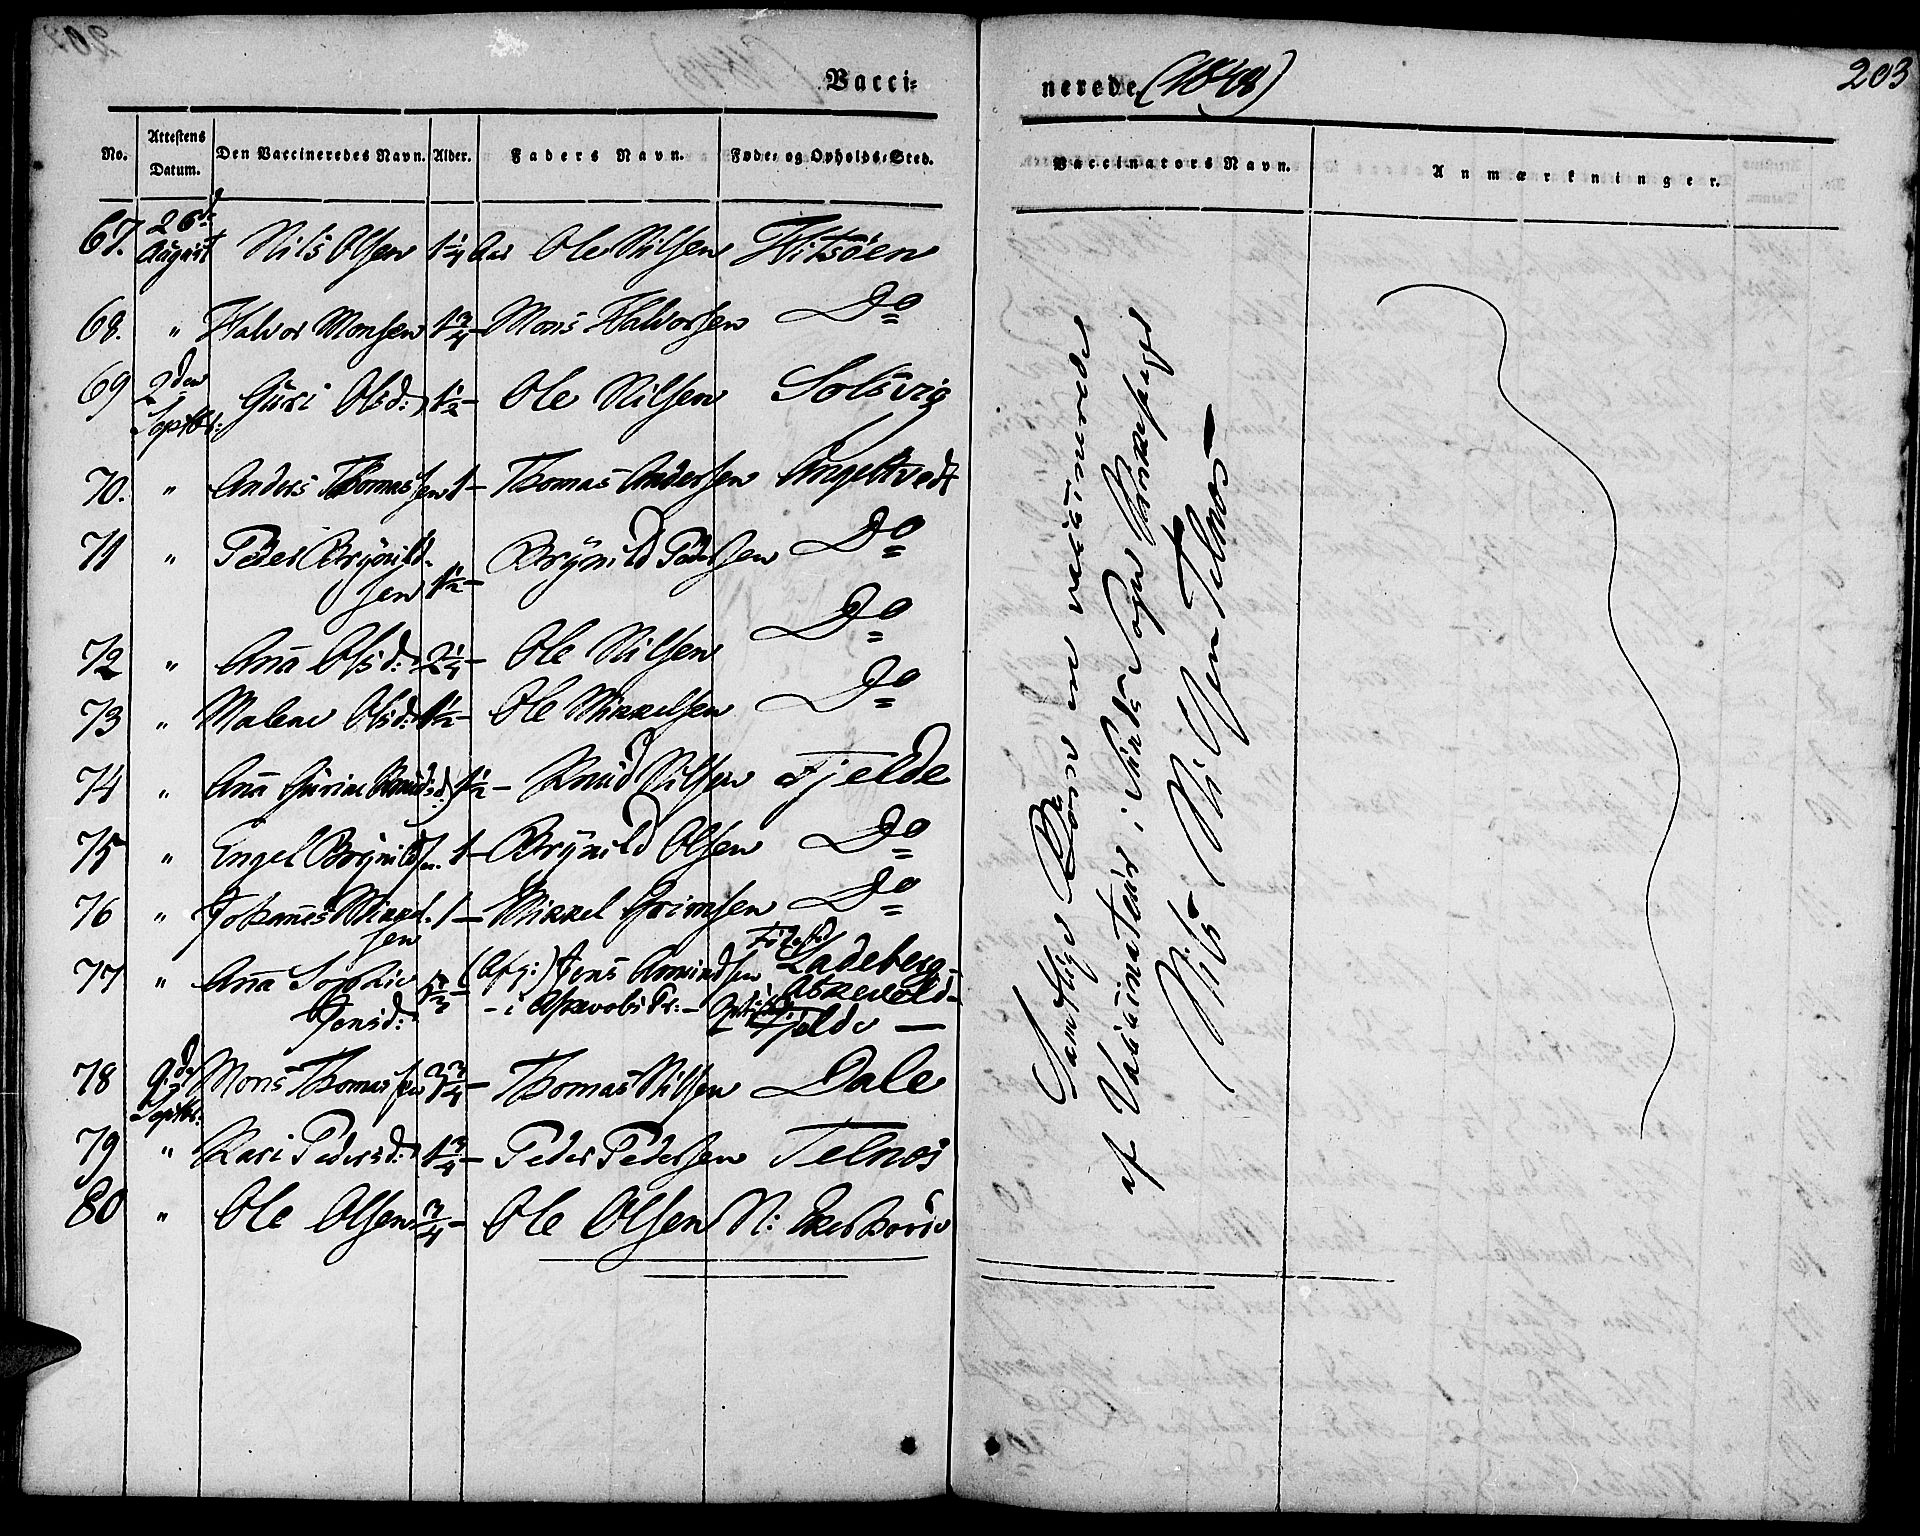 Vacci-
nerede (1848)
203
No. Attestens Datum. Den Vaccineredes Navn. Alder. Faders Navn. Føde- og Opholds-Sted.
Vaccinators Navn. Anmærkninger.
67. 26de August Nils Olsen 1 1/4 Aar Ole Nilsen Hitsöen
68. " Halvor Monsen 1 3/4 - Mons Halvorsen Do
69 2den Septbr: Guri Olsd: 1 1/2 - Ole Nilsen Solsvig
70. " Anders Thomassen 1 - Thomas Andersen Angeltvedt
71 " Peder Brynild-
sen 1 1/2 - Brynild Pedersen Do
72 " Anna Olsd: 2 1/4 - Ole Nilsen Do
73 " Malene Olsd: 1 1/2 - Ole Mikkelsen Do
74 " Anna Gurine Knudsd: 1 1/2 - Knud Nilsen Fjelde
75 " Engel Brynildsn. 1 - Brynild Olsen Do
76 " Johannes Mikkel-
sen 1 - Mikkel Grimsen Do
77 " Anna Sophie
Jensd: (Afg:) Jens Amundsen Ladeberg -
- i Askevolds Pr: - Askevold -
Fjelde -
78 9de Septbr: Mons Thomassen Thomas Nilsen Dale
79 " Kari Pedersd: 1 3/4 - Peder Pedersen Telnös
80 " Ole Olsen 3/4 - Ole Olsen N: Ekerhovde
Samtlige Börn ere vaccinerede
af Vaccinateur i Sunds Sogn
Nils Nilsen Telnös -